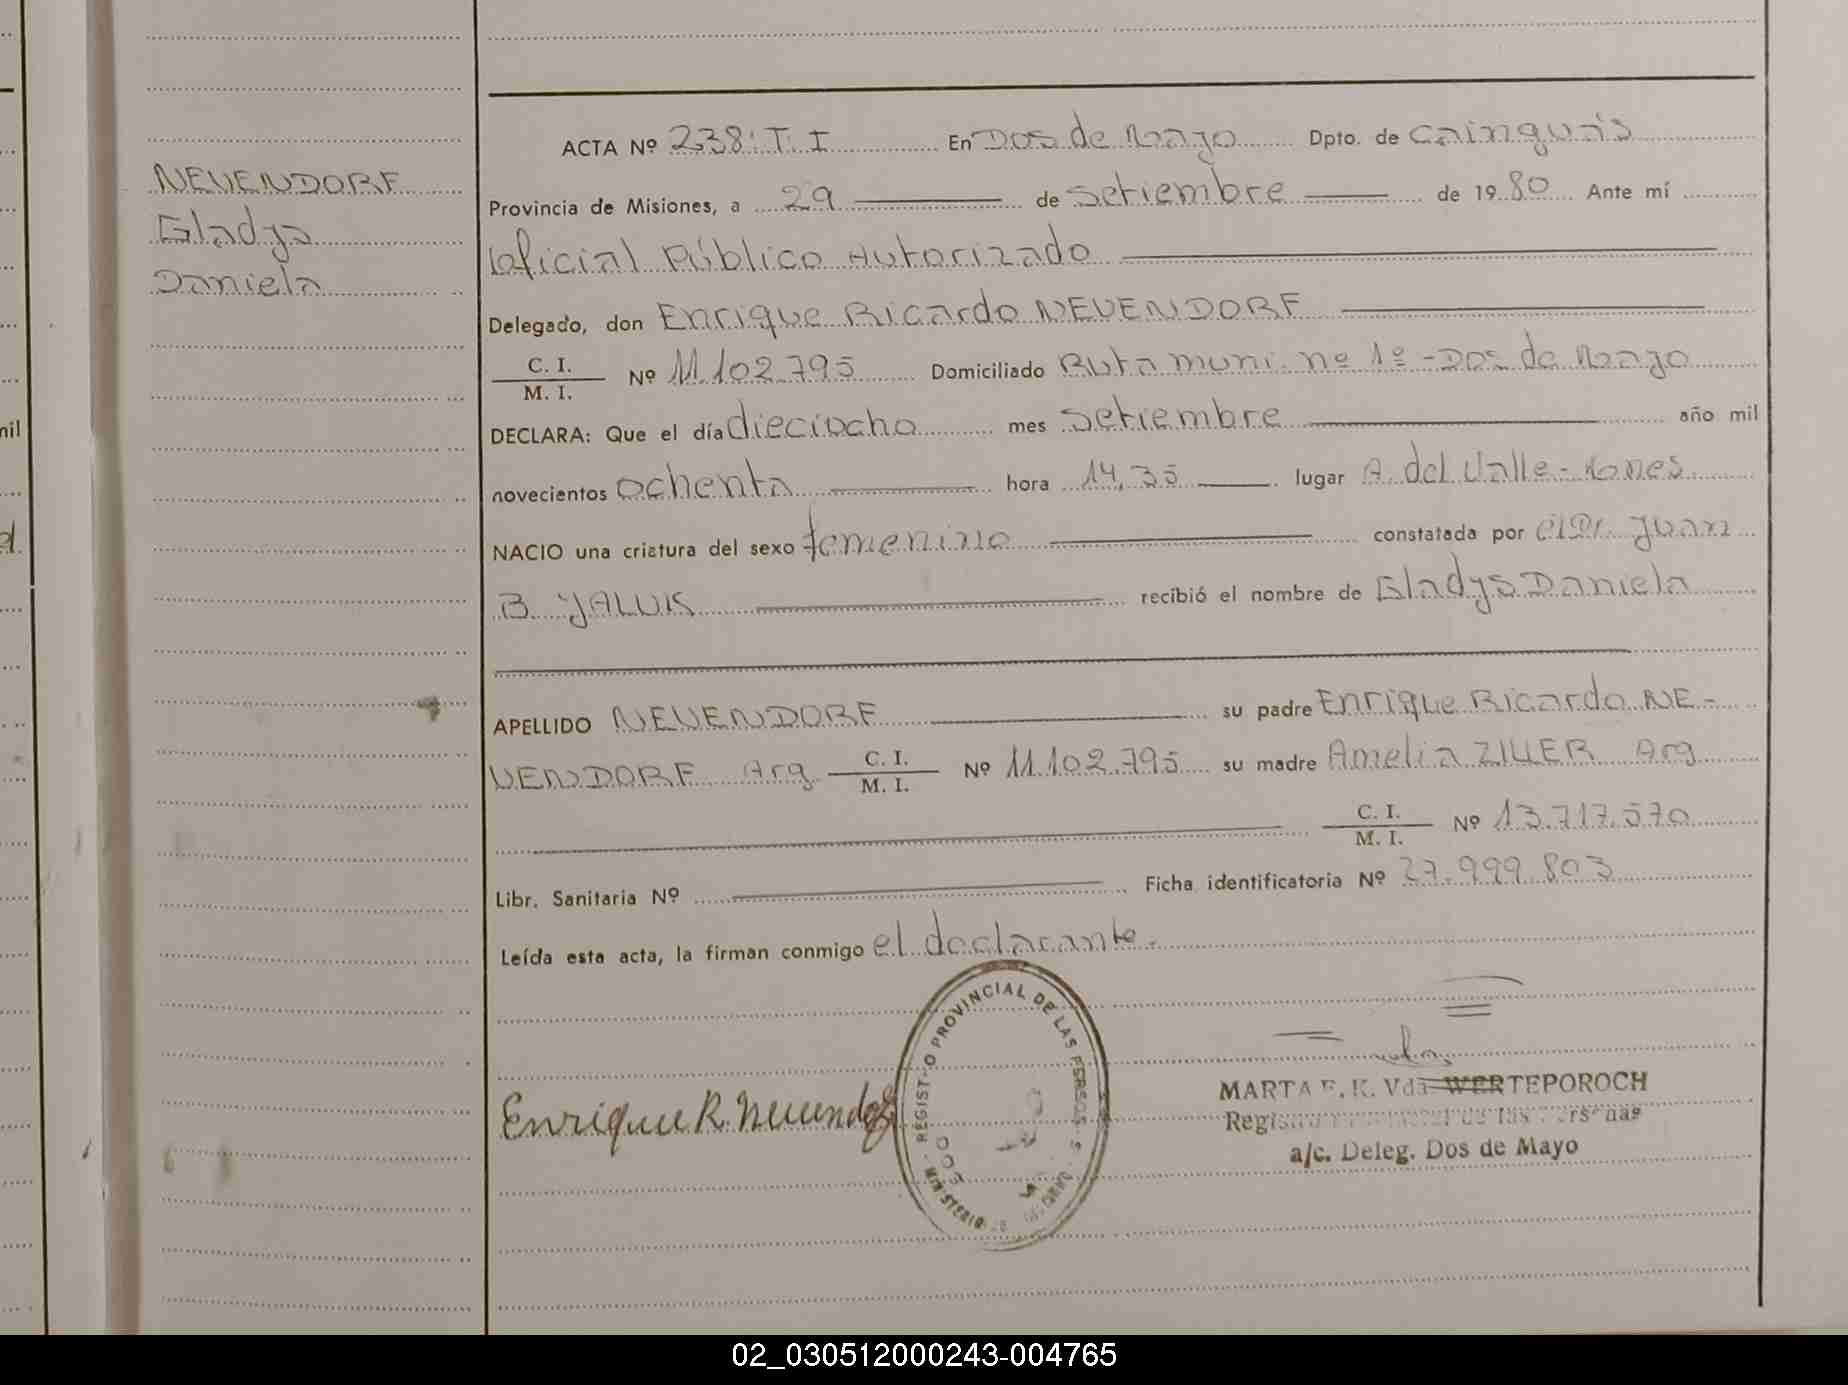 NEUENDORF
Gladys
Daniela
ACTA Nº 238: T. I En Dos de Mayo Dpto. de Cainguás
Provincia de Misiones, a 29 de Setiembre de 1980 Ante mí
Oficial Público Autorizado
Delegado, don Enrique Ricardo NEUENDORF
C. I.
M. I. Nº 11.102.795 Domiciliado Ruta muni. nº 1º - Dos de Mayo
DECLARA: Que el día dieciocho mes Setiembre año mil
novecientos ochenta hora 14,35 lugar A. del Valle -
NACIO una criatura del sexo femenino constatada por el Dr. Juan
B. YALUK recibió el nombre de Gladys Daniela
APELLIDO NEUENDORF su padre Enrique Ricardo NE-
UENDORF Arg C. I. M. I. Nº 11.102.795 su madre Amelia ZILLER Arg
C. I.
M. I. Nº 13.717.570
Libr. Sanitaria Nº Ficha identificatoria Nº 27.999.803
Leída esta acta, la firman conmigo el declarante.
REGISTRO PROVINCIAL DE LAS PERSONAS
MINISTERIO DE GOBIERNO
Enrique R. Neuendorf
MARTA E. K. Vda. WERTEPOROCH
a/c. Deleg. Dos de Mayo
mil
02_030512000243-004765